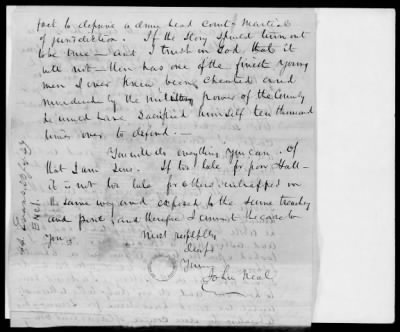 fact to depose a drum head Court-Martial
of jurisdiction. If the story should turn out
to be true – and I trust in God that it
will not – then has one of the finest young
men I ever knew, being cheated and
murdered by the military power of the Country
he would have sacrificed himself ten thousand
times over to defend. –
You will do everything you can. Of
that I am sure. If too late for poor Hall –
it is not too late for others entrapped in
the same way and exposed to the same treachery
and and therefore I cannot
you.
Most respectfully
Yours
John Neal